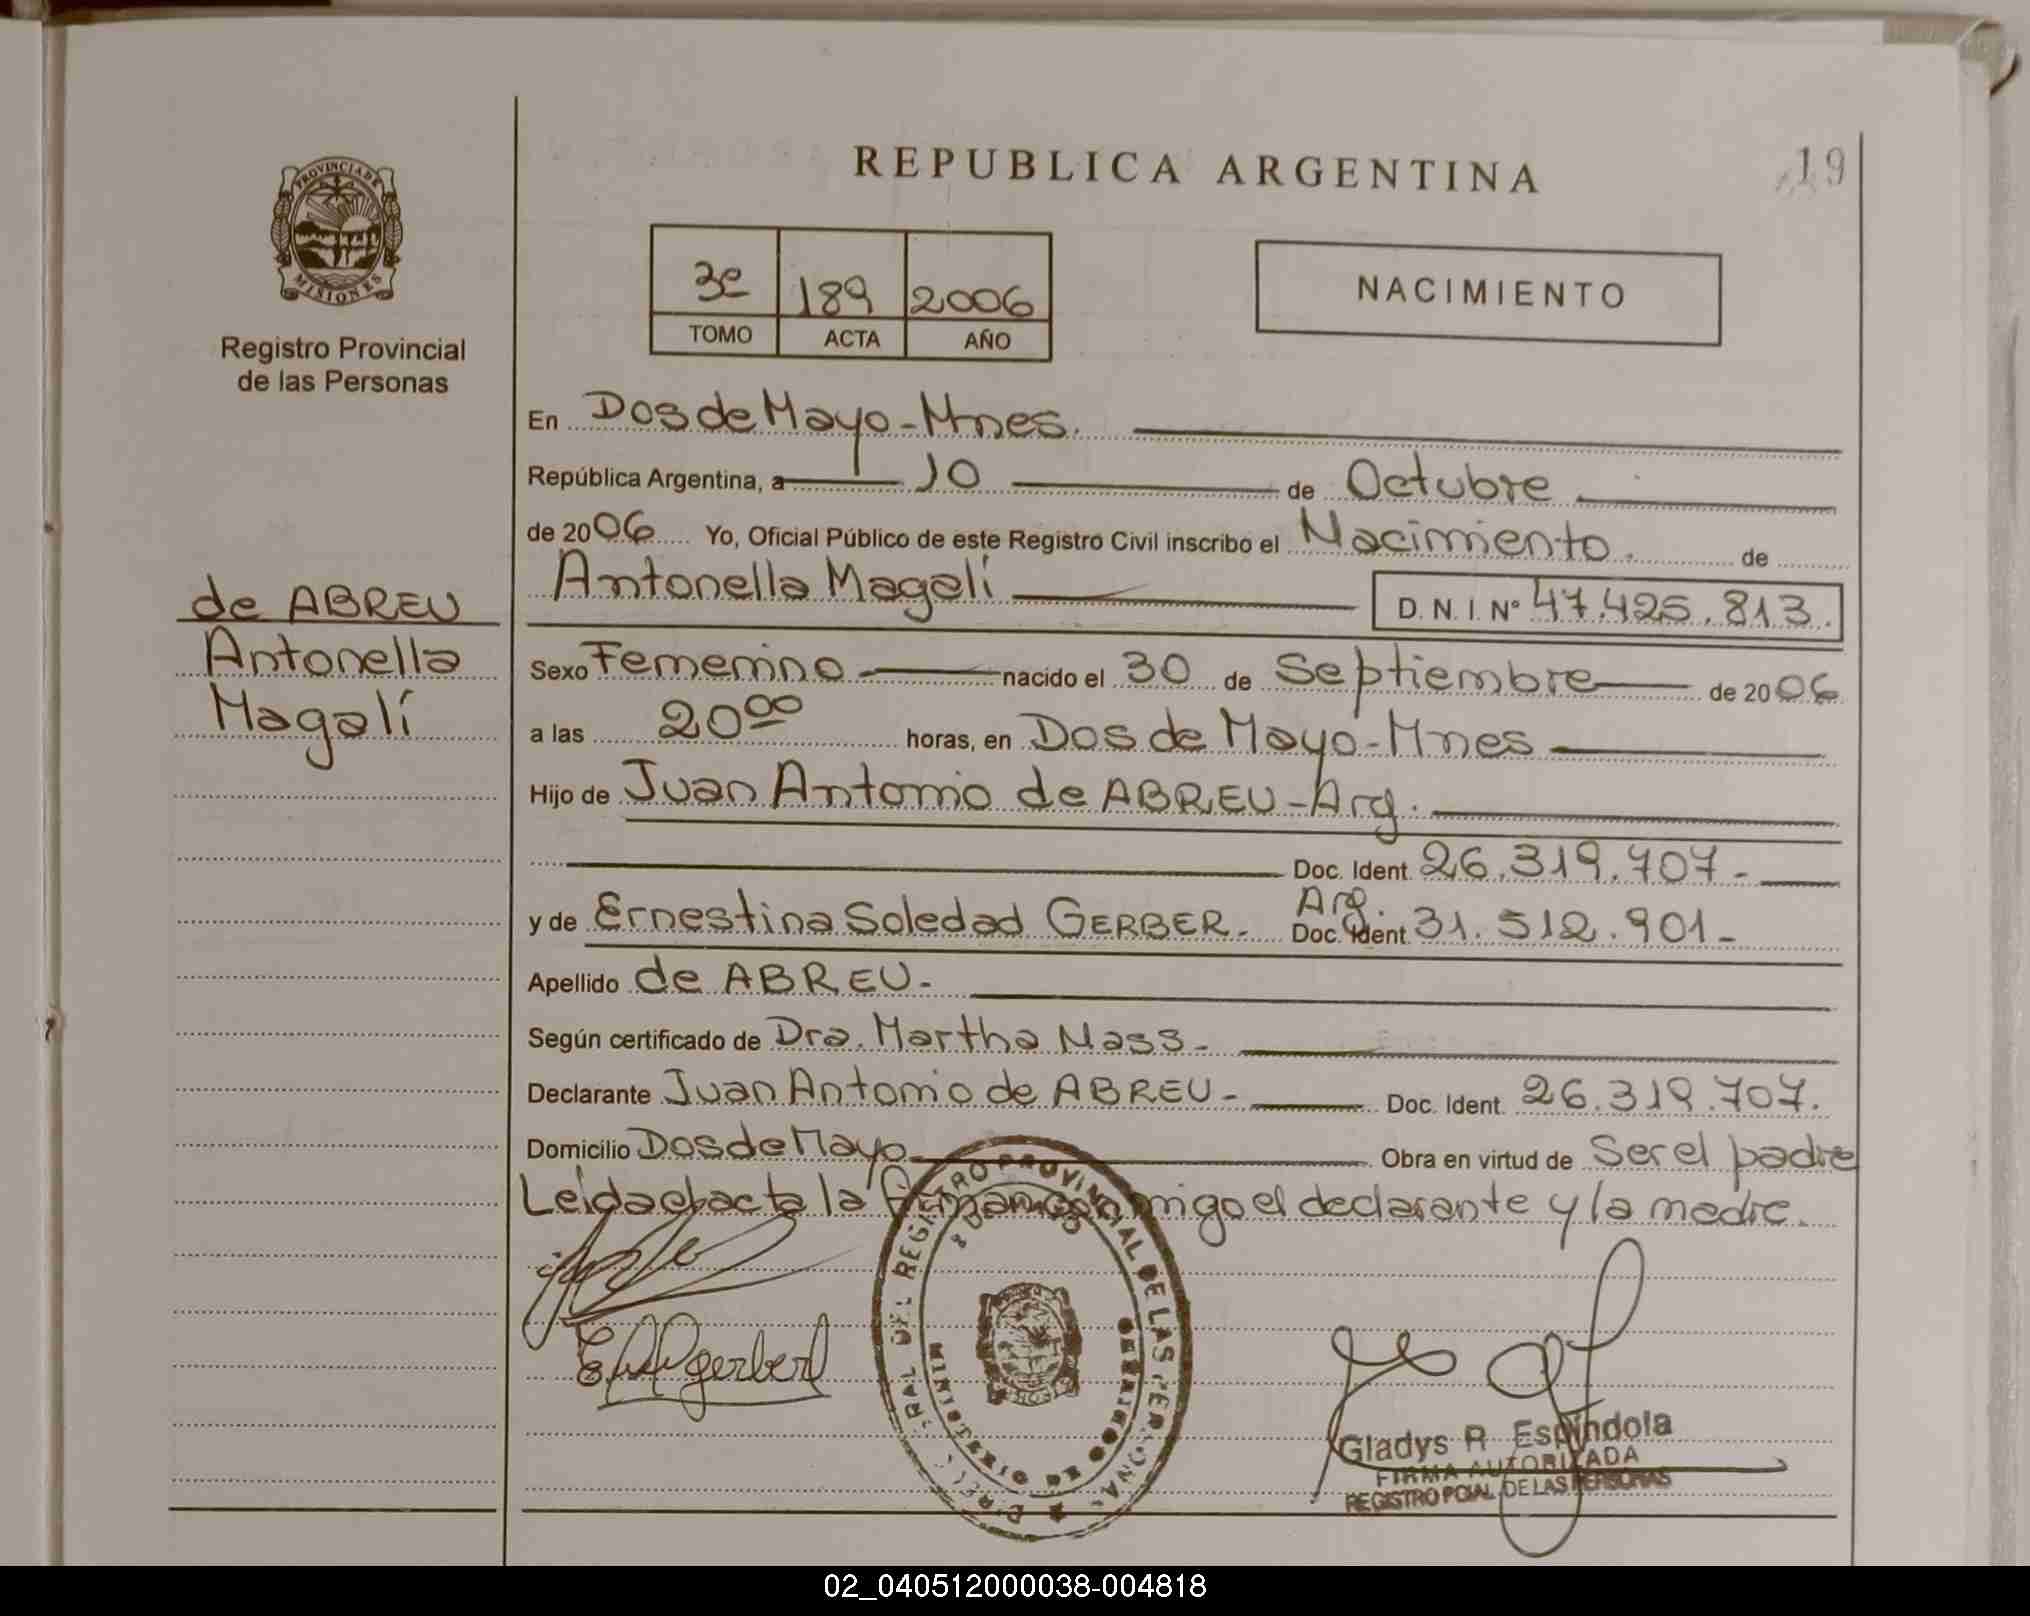 REPUBLICA ARGENTINA
19
PROVINCIA DE
MISIONES
Registro Provincial
de las Personas
3e 189 2006
TOMO ACTA AÑO
NACIMIENTO
de ABREU
Antonella
Magalí
En Dos de Mayo - Mnes.
República Argentina, a 10 de Octubre
de 2006 Yo, Oficial Público de este Registro Civil inscribo el Nacimiento. de
Antonella Magalí D.N.I. Nº 47.425.813.
Sexo Femenino nacido el 30 de Septiembre de 2006
a las 20⁰⁰ horas, en Dos de Mayo - Mnes
Hijo de Juan Antonio de ABREU - Arg.
Doc. Ident. 26.319.707-
y de Ernestina Soledad GERBER. Arg. Doc. Ident. 31.512.901-
Apellido de ABREU-
Según certificado de Dra. Martha Mass-
Declarante Juan Antonio de ABREU- Doc. Ident. 26.319.707.
Domicilio Dos de Mayo Obra en virtud de Ser el padre
Leída el acta la firman conmigo el declarante y la madre.
gerber
REGISTRO PROVINCIAL DE LAS PERSONAS
MINISTERIO DE GOBIERNO
Gladys R. Espíndola
FIRMA AUTORIZADA
REGISTRO PCIAL. DE LAS PERSONAS
02_040512000038-004818